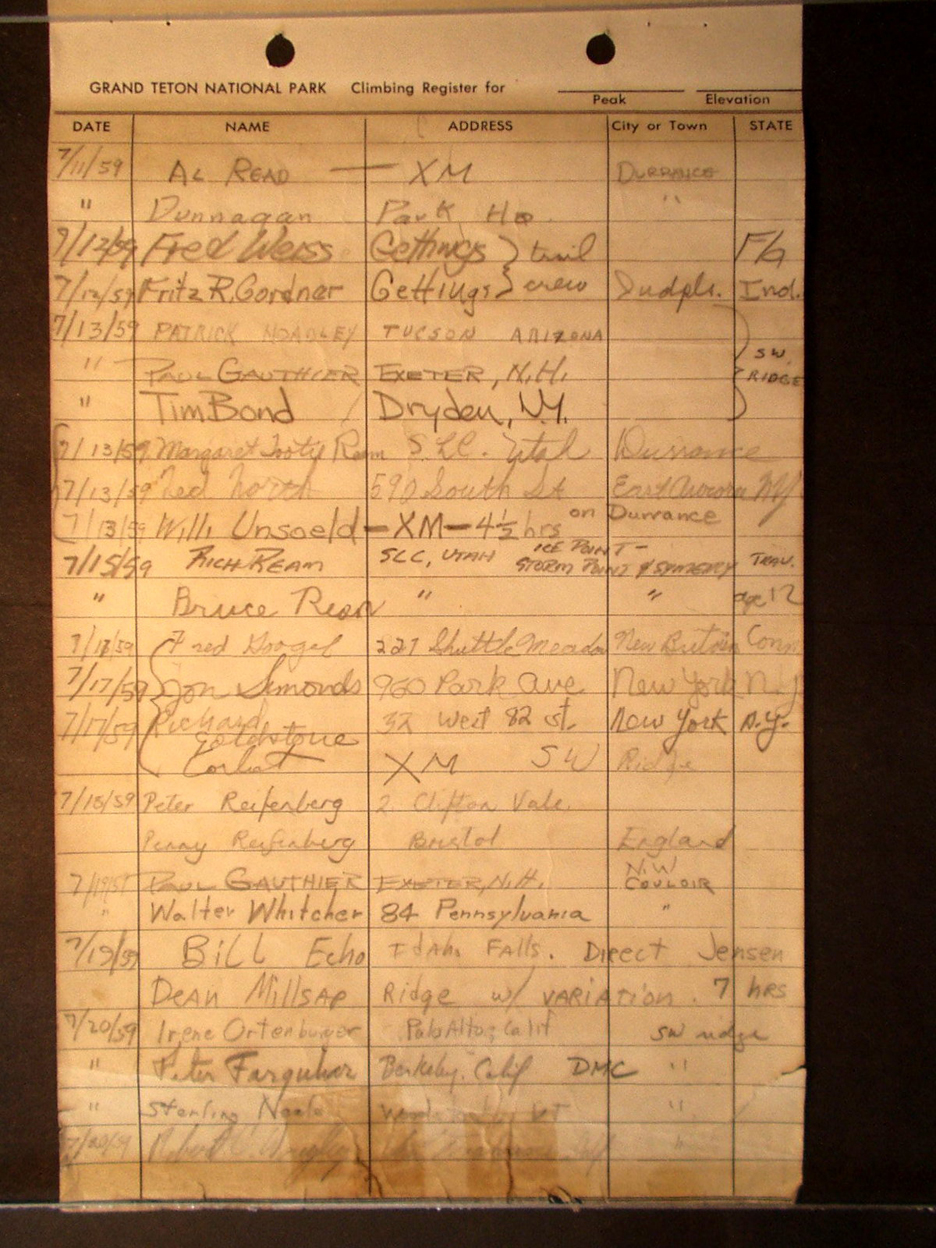 GRAND TETON NATIONAL PARK Climbing Register for
Peak Elevation
DATE NAME ADDRESS City or Town STATE
7/11/59 AL READ — XM DURRANCE
" Dunnagan Park HQ "
7/12/59 Fred Weiss Gettings } trail Fla
7/12/59 Fritz R. Gordner Gettings } crew Indpls. Ind.
7/13/59 PATRICK HOADLEY TUCSON ARIZONA
" PAUL GAUTHIER EXETER, N.H. SW RIDGE
" Tim Bond Dryden, N.Y.
7/13/59 Margaret Tooty Ream S.L.C. Utah Durrance
7/13/59 Ned North 590 South St East Aurora NY
7/13/59 Willi Unsoeld — XM — 4½ hrs on Durrance
7/15/59 RICH REAM SLC, UTAH ICE POINT – STORM POINT & SYMMETRY TRAV.
" Bruce Ream " " age 12
7/17/59 Fred 227 Shuttle Meadow New Britain Conn.
7/17/59 Jon Simonds 960 Park Ave New York N.Y.
7/17/59 Richard Goldstone 32 West 82 st. New York N.Y.
Corbet XM SW Ridge
7/18/59 Peter Reifenberg 2 Clifton Vale.
Penny Reifenberg Bristol England
7/19/59 PAUL GAUTHIER EXETER, N.H. N.W. COULOIR
" Walter Whitcher 84 Pennsylvania "
7/19/59 Bill Echo Idaho FALLS. Direct Jensen
Dean Millsap Ridge w/ VARIATION. 7 hrs
7/20/59 Irene Ortenburger Palo Alto, Calif SW ridge
" Peter Farquhar Berkeley, Calif DMC "
" Sterling Neale VT "
7/20/59 Robert "